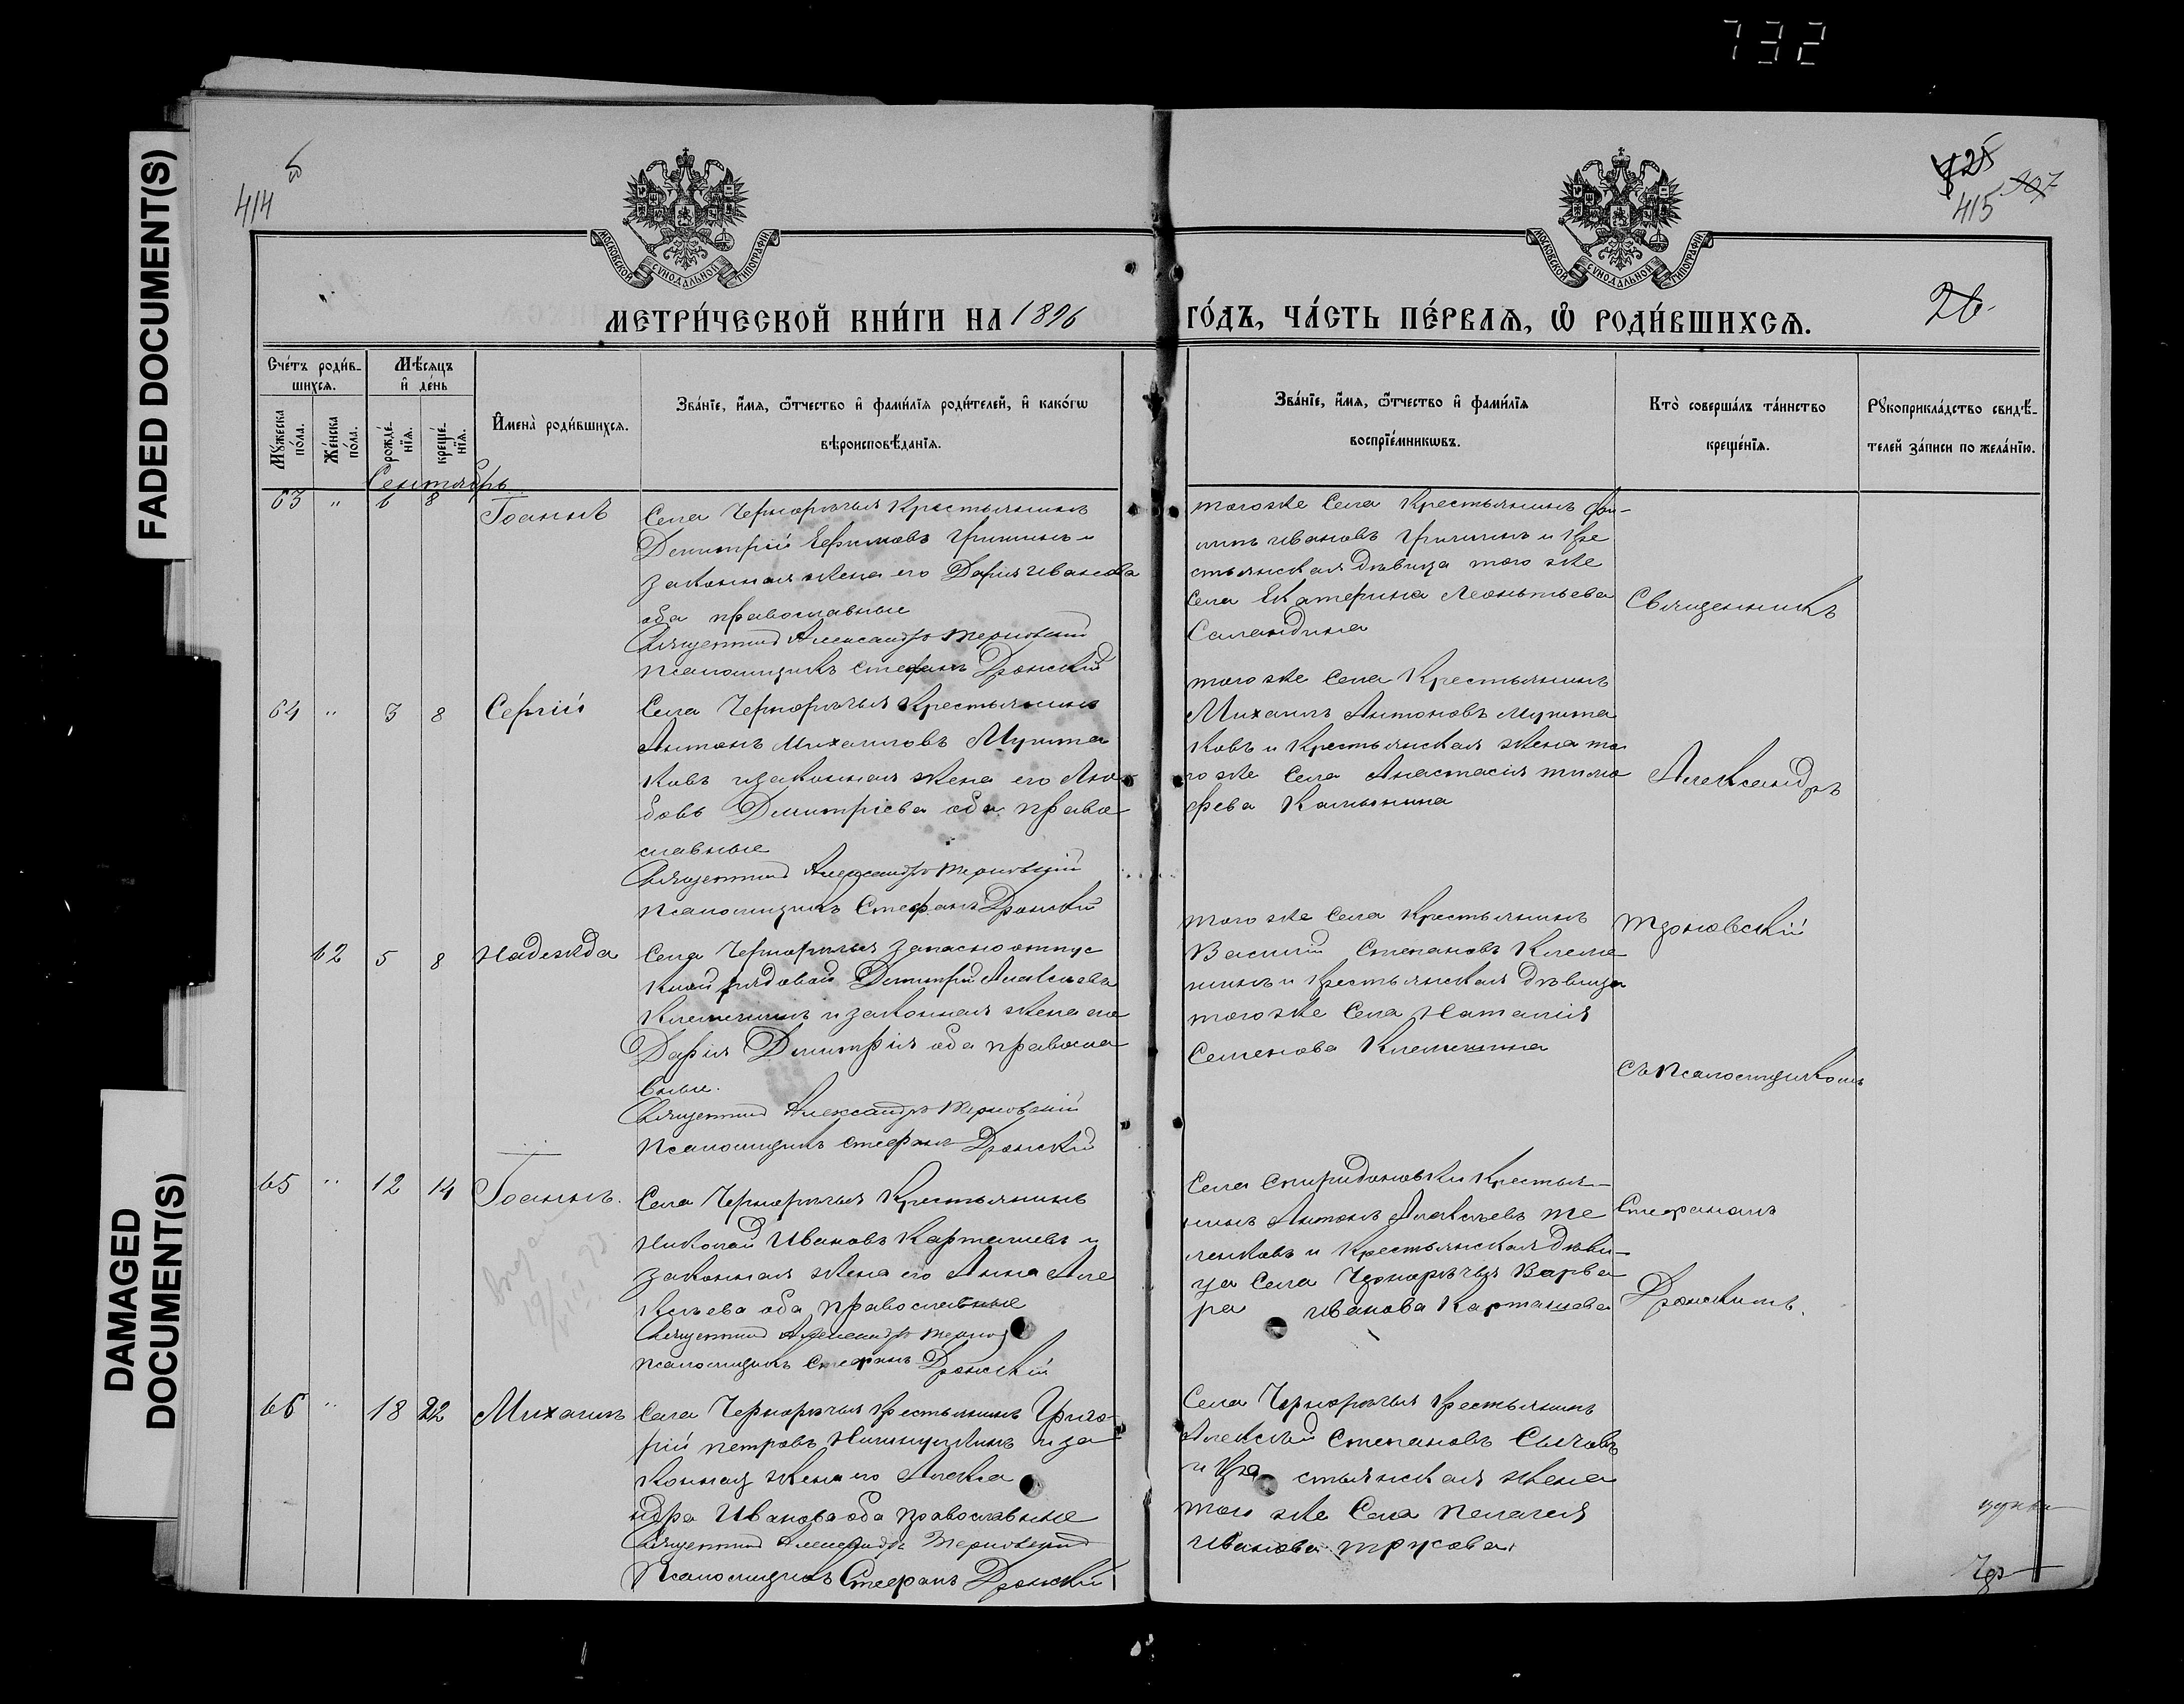 732
FADED DOCUMENT(S)
DAMAGED
DOCUMENT(S)
414
725
415 307
26.
МОСКОВСКОЙ СУНОДАЛЬНОЙ ТИПОГРАФІИ
МОСКОВСКОЙ СУНОДАЛЬНОЙ ТИПОГРАФІИ
МЕТРИ́ЧЕСКОЙ КНИ́ГИ НА 1896 ГО́ДЪ, ЧА́СТЬ ПЕ́РВАѦ, Ѡ РОДИ́ВШИХСѦ.
Сче́тъ роди́в-
шихсѧ.
Мѣ́сѧцъ
и҆ де́нь
Мꙋ́жеска
по́ла.
Же́нска
по́ла.
рожде́-
нїѧ.
креще́-
нїѧ.
И҆мена̀ роди́вшихсѧ.
Зва́нїе, и҆́мѧ, ѻ҆́тчество и҆ фами́лїѧ роди́телей, и҆ како́гѡ
вѣроисповѣ́данїѧ.
Зва́нїе, и҆́мѧ, ѻ҆́тчество и҆ фами́лїѧ
воспрїе́мникѡвъ.
Кто̀ соверша́лъ та́инство
креще́нїѧ.
Рꙋкоприкла́дство свидѣ́-
телей за́писи по жела́нїю.
Сентябрь
63 " 6 8 Іоаннъ
Села Чернорѣчья Крестьянинъ
Димитрій Ефимовъ Гришинъ и
законная жена его Дарія Иванова
оба православные
Священникъ Александръ Терновскій
Псаломщикъ Стефанъ Дронскій
тогоже Села Крестьянинъ Фи-
липъ Ивановъ Гришинъ и Кре
стьянская дѣвица того же
Села Екатерина Леонтьева
Саландина
64 " 3 8 Сергій
Села Чернорѣчья Крестьянинъ
Антонъ Михаиловъ Мушта
ковъ и законная жена его Лю
бовь Димитріева оба право
славные
Священникъ Александръ Терновскій
Псаломщикъ Стефанъ Дронскій
того же Села Крестьянинъ
Михаилъ Антоновъ Мушта
ковъ и Крестьянская жена то
го же Села Анастасія Тимо
феева
62 5 8 Надежда
Села Чернорѣчья запасно отпус
кной рядовой Димитрій Алексѣевъ
Клемешинъ и законная жена его
Дарія Димитрія оба правосла
вные.
Священникъ Александръ Терновскій
Псаломщикъ Стефанъ Дронскій
того же Села Крестьянинъ
Василій Степановъ Клеме
шинъ и Крестьянская дѣвица
того же Села Наталія
Семенова Клемешина
65 " 12 14 Іоаннъ.
Села Чернорѣчья Крестьянинъ
Николай Ивановъ Карташевъ и
законная жена его Анна Але
ксѣева оба православные
Священникъ Александръ Терно
Псаломщикъ Стефанъ Дронскій
Села Спиридоновки Крестья-
нинъ Антонъ Алексѣевъ Те
ленковъ и Крестьянская дѣви-
ца Села Чернорѣчья Варва
ра Иванова Карташева
66 " 18 22 Михаилъ
Села Чернорѣчья Крестьянинъ Григо-
рій Петровъ и за
конная жена его Алекса
ндра Иванова оба православные
Священникъ Александръ Терновскій
Псаломщикъ Стефанъ Дронскій
Села Чернорѣчья Крестьянинъ
Алексѣй Степановъ Сычовъ
и Кре стьянская жена
того же Села Пелагея
Иванова Трусова
Священникъ
Александръ
Терновскій
съ Псаломщикомъ
Стефаномъ
Дронскимъ.